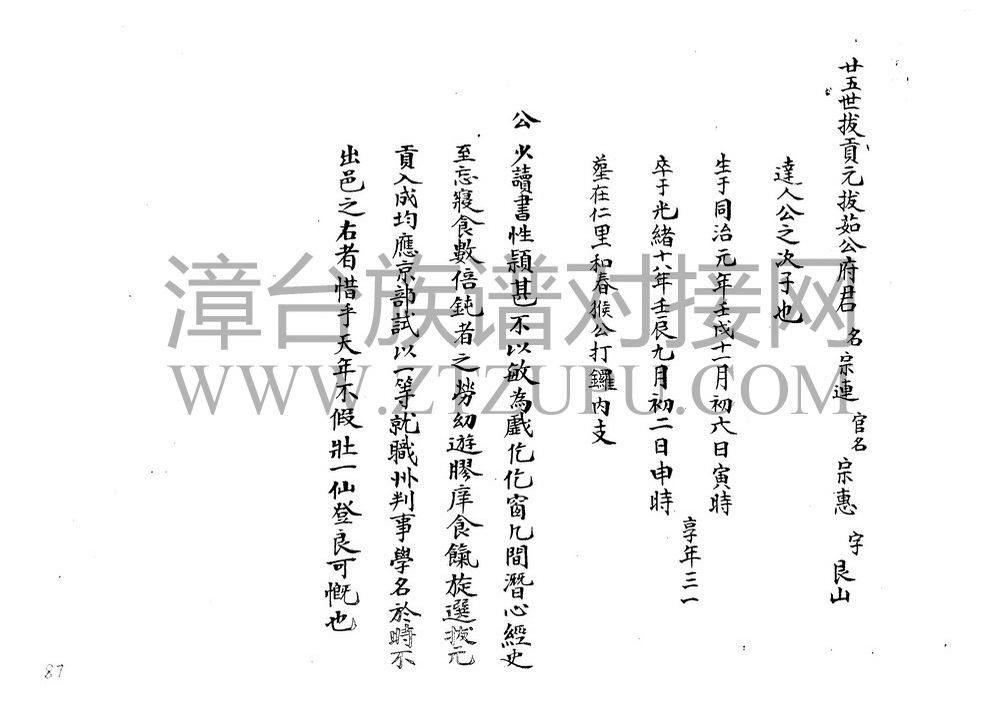 廿五世拔貢元拔茹公府君 名宗連 官名宗惠 字艮山
達人公之次子也
生于同治元年壬戌十一月初六日寅時
卒于光緒十八年壬辰九月初二日申時
享年三一
墓在仁里和春猴公打鑼內支
公少讀書性穎甚不以敏為戲仡仡窗几間潛心經史
至忘寢食數倍鈍者之勞幼遊膠庠食餼旋選拔元
貢入成均應京部試以一等就職州判事學名於時不
出邑之右者惜乎天年不假壯一仙登良可慨也
漳台族谱对接网
WWW.ZTZUPU.COM
87